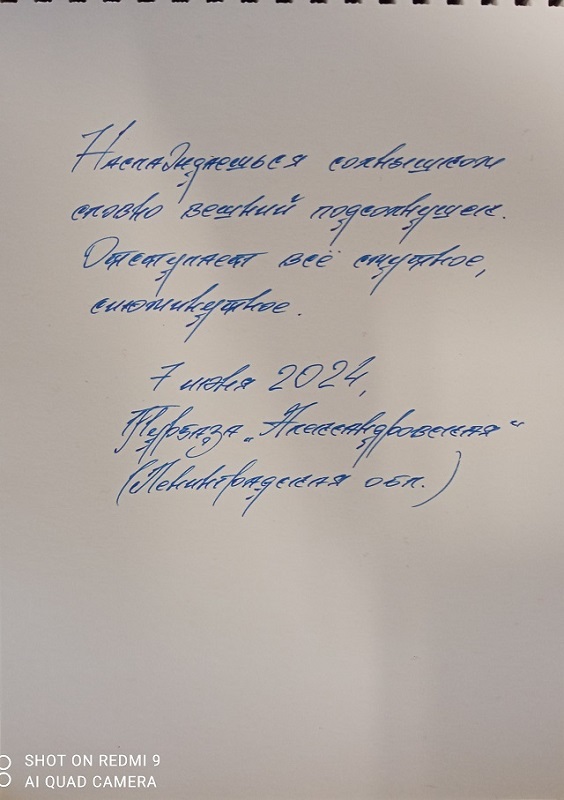 Наслаждаешься солнышком
словно вешний подсолнушек.
Отступает всё смутное,
сиюминутное.
7 июня 2024,
Турбаза „Александровская“
(Ленинградская обл.)
SHOT ON REDMI 9
AI QUAD CAMERA